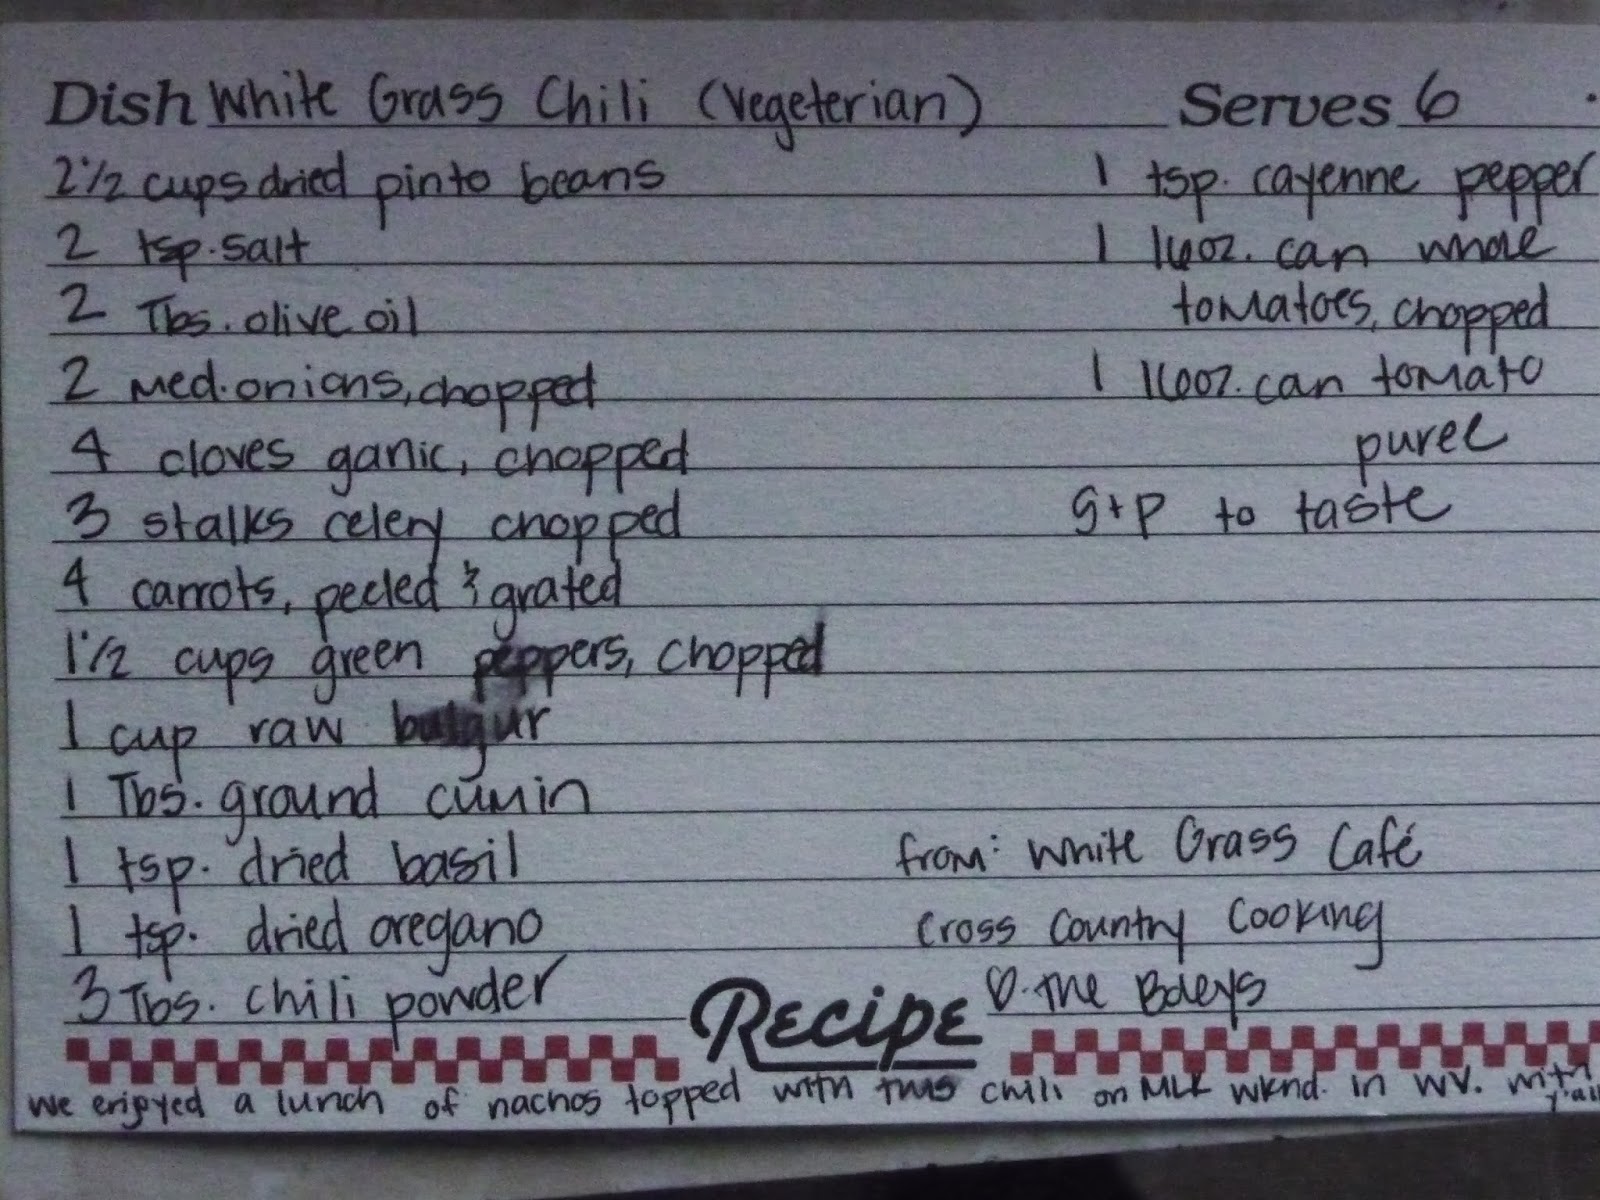 Dish White Grass Chili (Vegeterian) Serves 6
2 1/2 cups dried pinto beans
2 tsp. salt
2 Tbs. olive oil
2 med. onions, chopped
4 cloves garlic, chopped
3 stalks celery chopped
4 carrots, peeled & grated
1 1/2 cups green peppers, chopped
1 cup raw bulgur
1 Tbs. ground cumin
1 tsp. dried basil
1 tsp. dried oregano
3 Tbs. chili powder
1 tsp. cayenne pepper
1 16oz. can whole
tomatoes, chopped
1 16oz. can tomato
puree
S+P to taste
from: White Grass Café
Cross Country Cooking
♡. The
Recipe
We enjoyed a lunch of nachos topped with this chili on MLK wknd. in WV. with
y'all